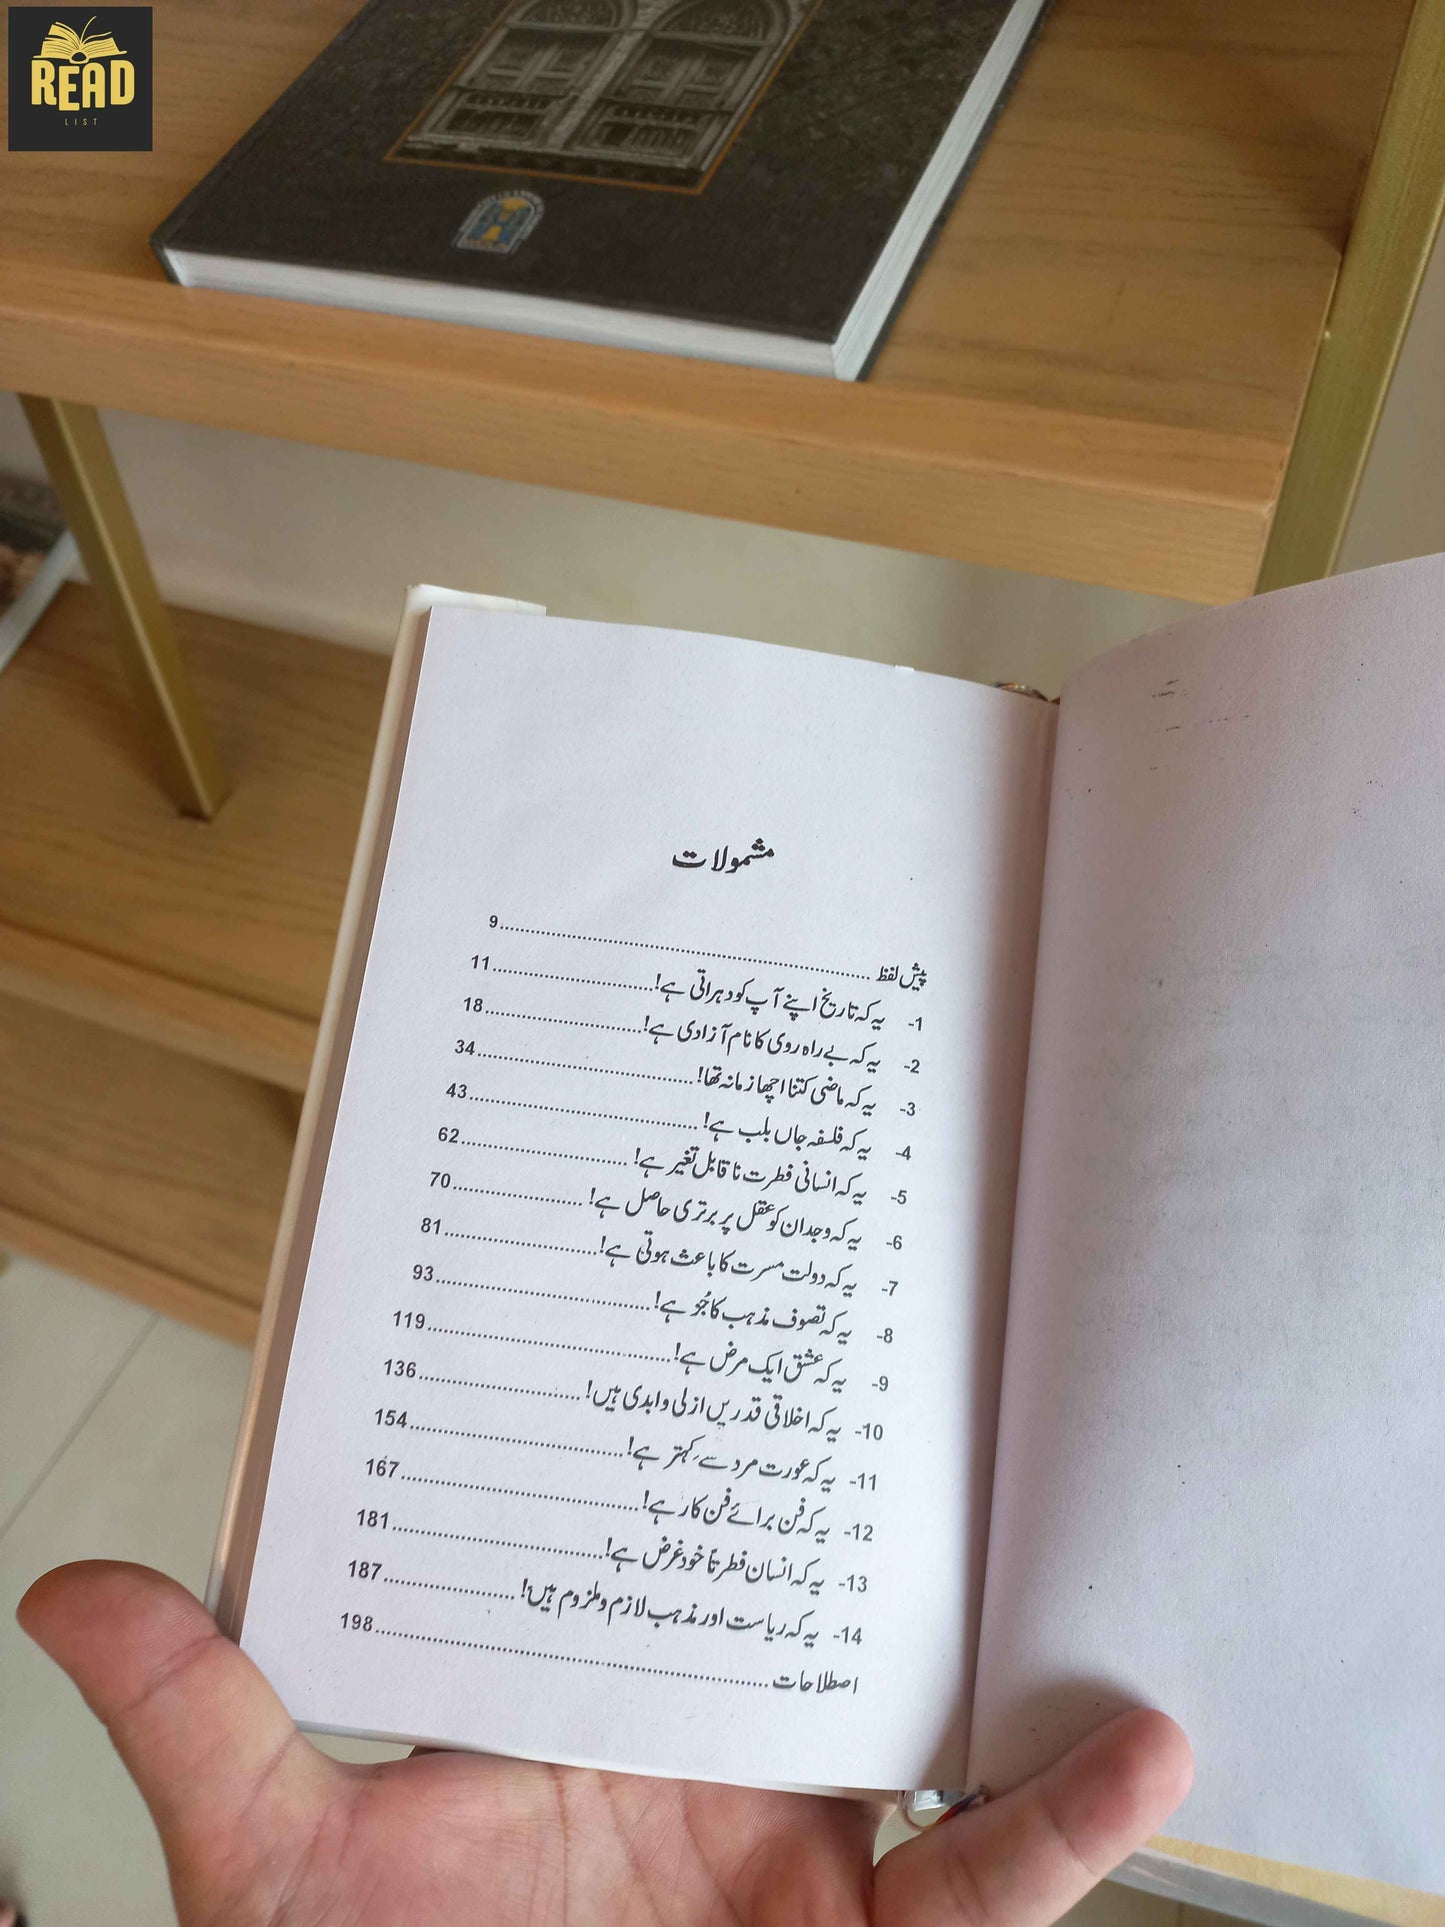 READ
LIST
مشمولات
پیش لفظ ........ 9
1- یہ کہ تاریخ اپنے آپ کو دہراتی ہے! ........ 11
2- یہ کہ بے راہ روی کا نام آزادی ہے! ........ 18
3- یہ کہ ماضی کتنا اچھا زمانہ تھا! ........ 34
4- یہ کہ فلسفہ جاں بلب ہے! ........ 43
5- یہ کہ انسانی فطرت ناقابل تغیر ہے! ........ 62
6- یہ کہ وجدان کو عقل پر برتری حاصل ہے! ........ 70
7- یہ کہ دولت مسرت کا باعث ہوتی ہے! ........ 81
8- یہ کہ تصوف مذہب کا جُز ہے! ........ 93
9- یہ کہ عشق ایک مرض ہے! ........ 119
10- یہ کہ اخلاقی قدریں ازلی و ابدی ہیں! ........ 136
11- یہ کہ عورت مرد سے کہتر ہے! ........ 154
12- یہ کہ فن برائے فن کار ہے! ........ 167
13- یہ کہ انسان فطرتاً خود غرض ہے! ........ 181
14- یہ کہ ریاست اور مذہب لازم و ملزوم ہیں! ........ 187
اصطلاحات ........ 198